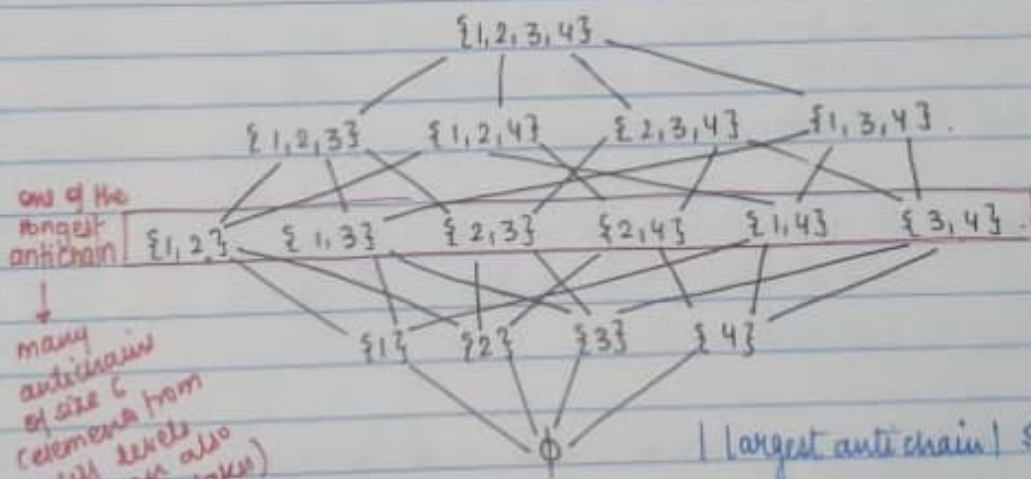 {1,2,3,4}
{1,2,3} {1,2,4} {2,3,4} {1,3,4}.
one of the
longest
antichain
{1,2} {1,3} {2,3} {2,4} {1,4} {3,4}.
{1} {2} {3} {4}
ϕ
many
antichains
of size 6
(elements from
levels
also
| largest antichain |